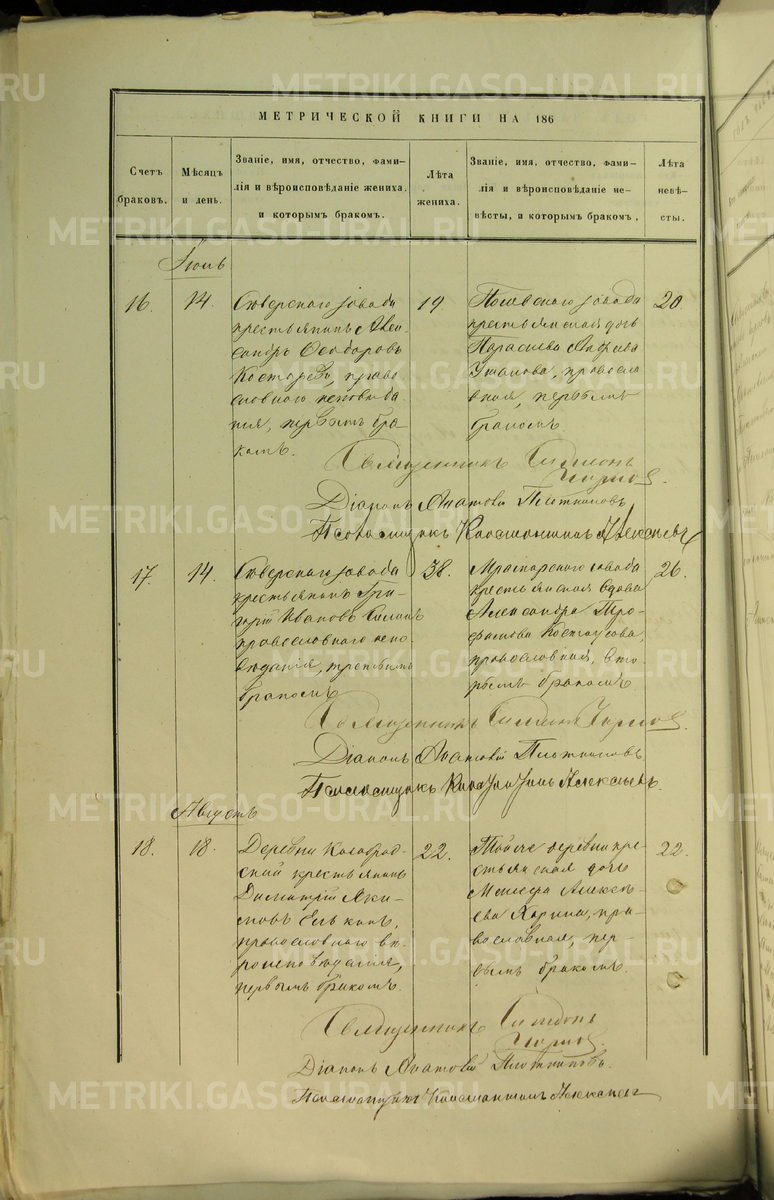 METRIKI.GASO-URAL.RU
МЕТРИЧЕСКОЙ КНИГИ НА 186
Счетъ браковъ.
Мѣсяцъ и день.
Званіе, имя, отчество, фами-
лія и вѣроисповѣданіе жениха.
и которымъ бракомъ.
Лѣта жениха.
Званіе, имя, отчество, фамилія
и вѣроисповѣданіе не-
вѣсты, и которымъ бракомъ.
Лѣта невѣ-
сты.
Іюль
16.
14.
Сѣверскаго завода
крестьянинъ Алек
сандръ Ѳеодоровъ
православнаго исповѣда
нія, первымъ бра
комъ.
19.
Полевскаго завода
крестьянская дочь
Параскева
православ
ная, первымъ
бракомъ
20
Священникъ Симеонъ
Діаконъ Анатолій Плотниковъ
Псаломщикъ Константинъ Алексѣевъ
17.
14.
Сѣверскаго завода
крестьянинъ Гри-
горій Ивановъ
православнаго испо-
вѣданія, третьимъ
бракомъ
38.
Мраморскаго завода
крестьянская вдова
Александра Тро-
фимова
православная, вто-
рымъ бракомъ
26.
Священникъ Симеонъ
Діаконъ Анатолій Плотниковъ
Псаломщикъ Константинъ Алексѣевъ.
Августъ
18.
18.
Деревни
крестьянинъ
Димитрій Яки-
мовъ
православнаго вѣ-
роисповѣданія,
первымъ бракомъ.
22.
Той же деревни кре-
стьянская дочь
Алексѣ-
ева пра-
вославная, пер-
вымъ бракомъ.
22.
Священникъ Симеонъ
Діаконъ Анатолій Плотниковъ.
Псаломщикъ Константинъ Алексѣевъ